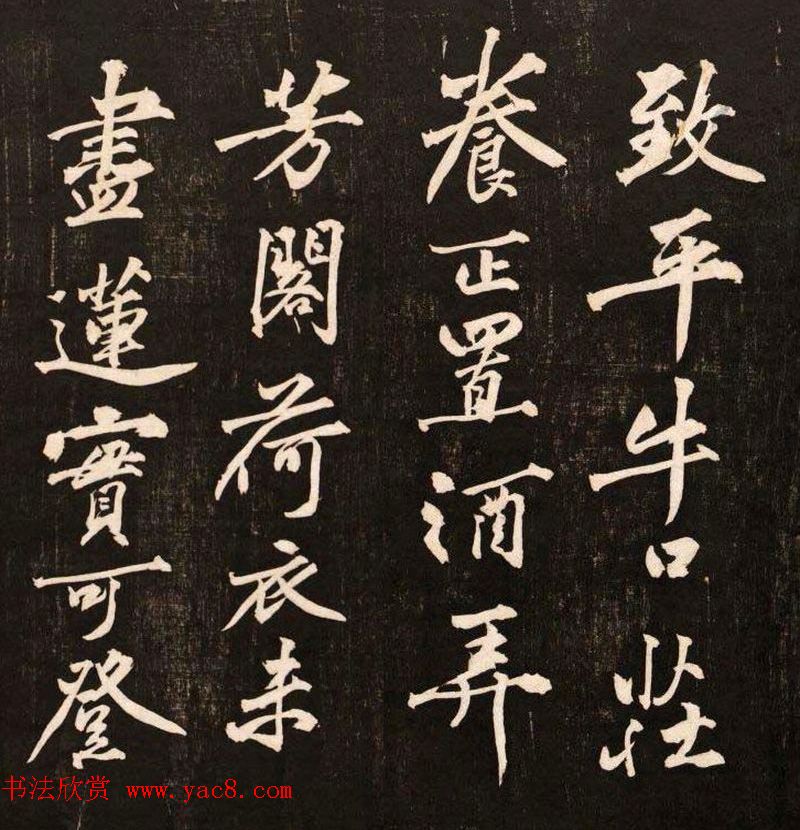 致平牛口莊
養正置酒弄
芳閣荷衣未
盡蓮實可登
书法欣赏 www.yac8.com